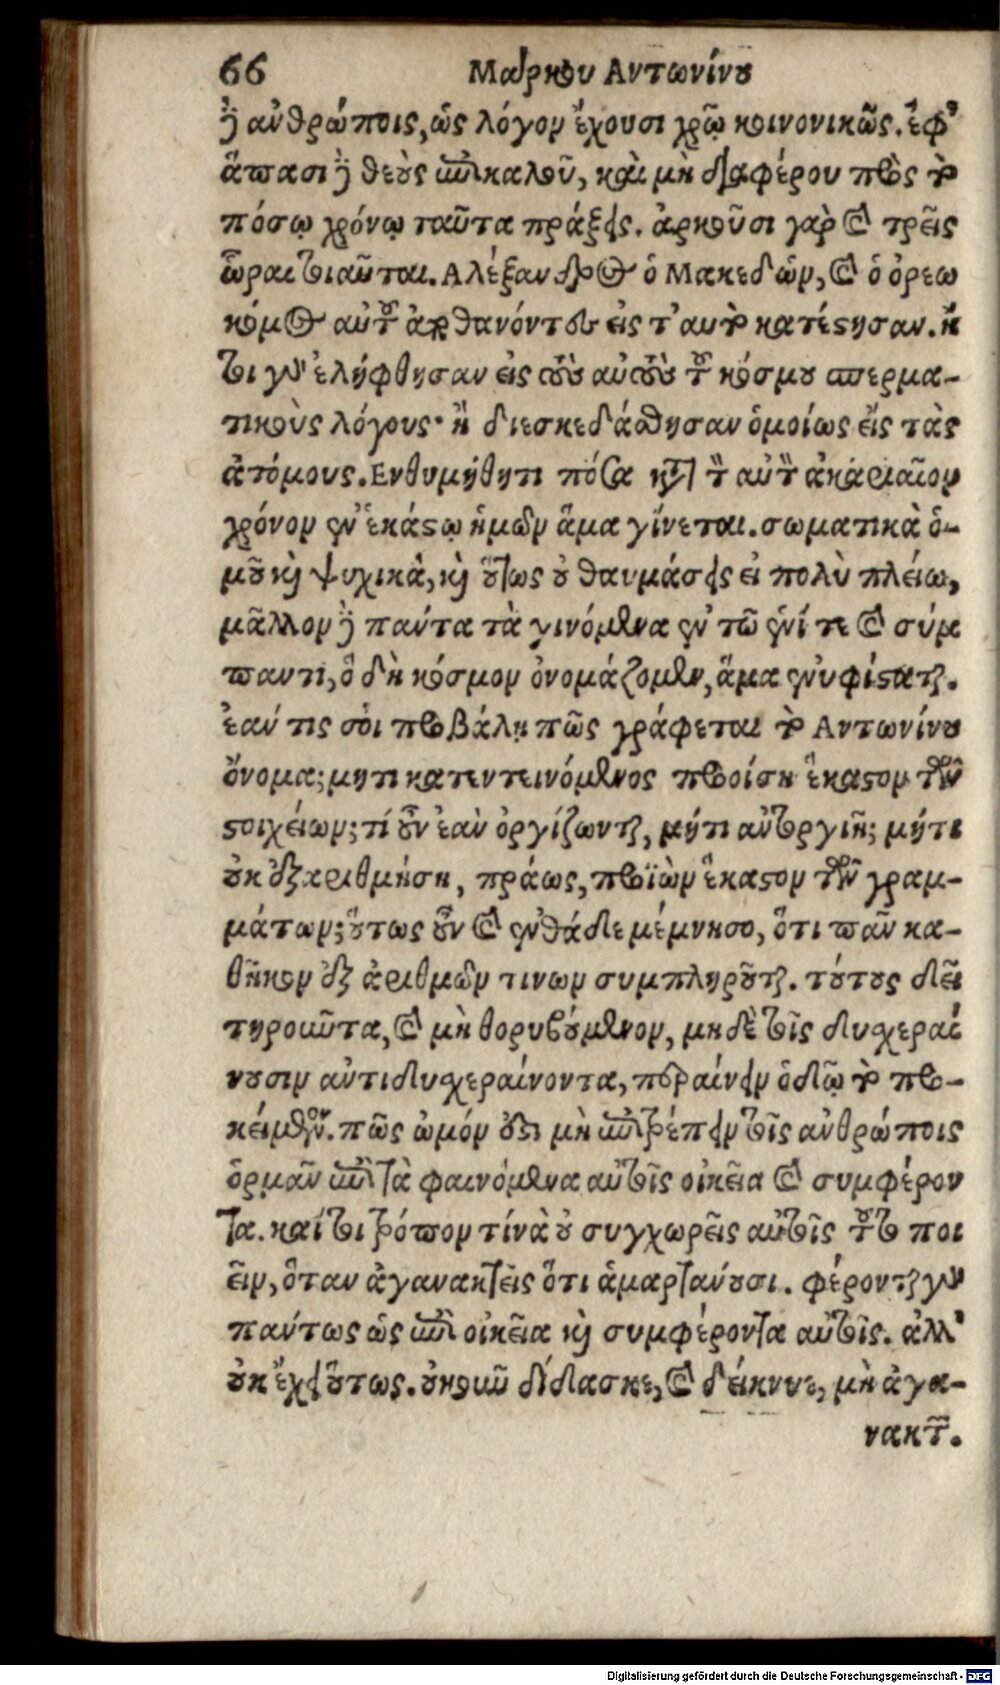 66 Μάρκου Αντωνίνου
δὲ ἀνθρώποις, ὡς λόγον ἔχουσι χρῶ κοινονικῶς. ἐφ᾽
ἅπασι δὲ θεοὺς ἐπικαλοῦ, καὶ μὴ διαφέρου πρὸς τὸ
πόσῳ χρόνῳ ταῦτα πράξεις. ἀρκοῦσι γὰρ καὶ τρεῖς
ὧραι τοιαῦται. Αλέξανδρος ὁ Μακεδὼν, καὶ ὁ ὀρεω
κόμος αὐτοῦ ἀποθανόντες εἰς τ᾽αυτὸ κατέστησαν. ἤ
τοι γὰρ ἐλήφθησαν εἰς τοὺς αὐτοὺς τοῦ κόσμου σπερμα-
τικοὺς λόγους· ἢ διεσκεδάσθησαν ὁμοίως εἰς τὰς
ἀτόμους. Ενθυμήθητι πόσα κατὰ τὸν αὐτὸν ἀκαριαῖον
χρόνον ἐν ἑκάστῳ ἡμῶν ἅμα γίνεται. σωματικὰ ὁ-
μοῦ καὶ ψυχικὰ, καὶ οὕτως οὐ θαυμάσεις εἰ πολὺ πλείω,
μᾶλλον δὲ πάντα τὰ γινόμενα ἐν τῶ ἑνί τε καὶ σύμ
παντι, ὃ δὴ κόσμον ὀνομάζομεν, ἅμα ἐνυφίσταται.
ἐαν τίς σοι προβάλη πῶς γράφεται τὸ Αντωνίνου
ὄνομα; μητι κατεντεινόμενος προοίση ἕκαστον τῶν
στοιχείων; τί οὖν ἐὰν ὀργίζωνται, μήτι αντοργιῆ; μήτι
οὐκ ἐξαριθμήση, πράως, προϊὼν ἕκαστον τῶν γραμ-
μάτων; οὕτως οὖν καὶ ἐνθάδε μέμνησο, ὅτι πᾶν κα-
θῆκον ἐξ ἀριθμῶν τινων συμπληροῦται. τούτους δεῖ
τηροῦντα, καὶ μὴ θορυβούμενον, μηδὲ τοῖς δυσχεραί
νουσιν αντιδυσχεραίνοντα, περαίνειν ὁδῶ τὸ προ-
κείμενον. πῶς ὠμόν ἐστι μὴ ἐπιτρέπειν τοῖς ανθρώποις
ὁρμᾶν ἐπὶ τὰ φαινόμενα αὐτοῖς οἰκεῖα καὶ συμφέρον
τα. καί τοι τρόπον τινὰ οὐ συγχωρεῖς αὐτοῖς τοῦτο ποι
εῖν, ὅταν ἀγανακτεῖς ὅτι ἁμαρτάνουσι. φέρονται γὰρ
πάντως ὡς ἐπὶ οἰκεῖα καὶ συμφέροντα αὐτοῖς. ἀλλ᾽
οὐκ ἔχει οὕτως. οὐκοῦν δίδασκε, καὶ δείκνυε, μὴ ἀγα-
νακτῶν.
Digitalisierung gefördert durch die Deutsche Forschungsgemeinschaft - DFG